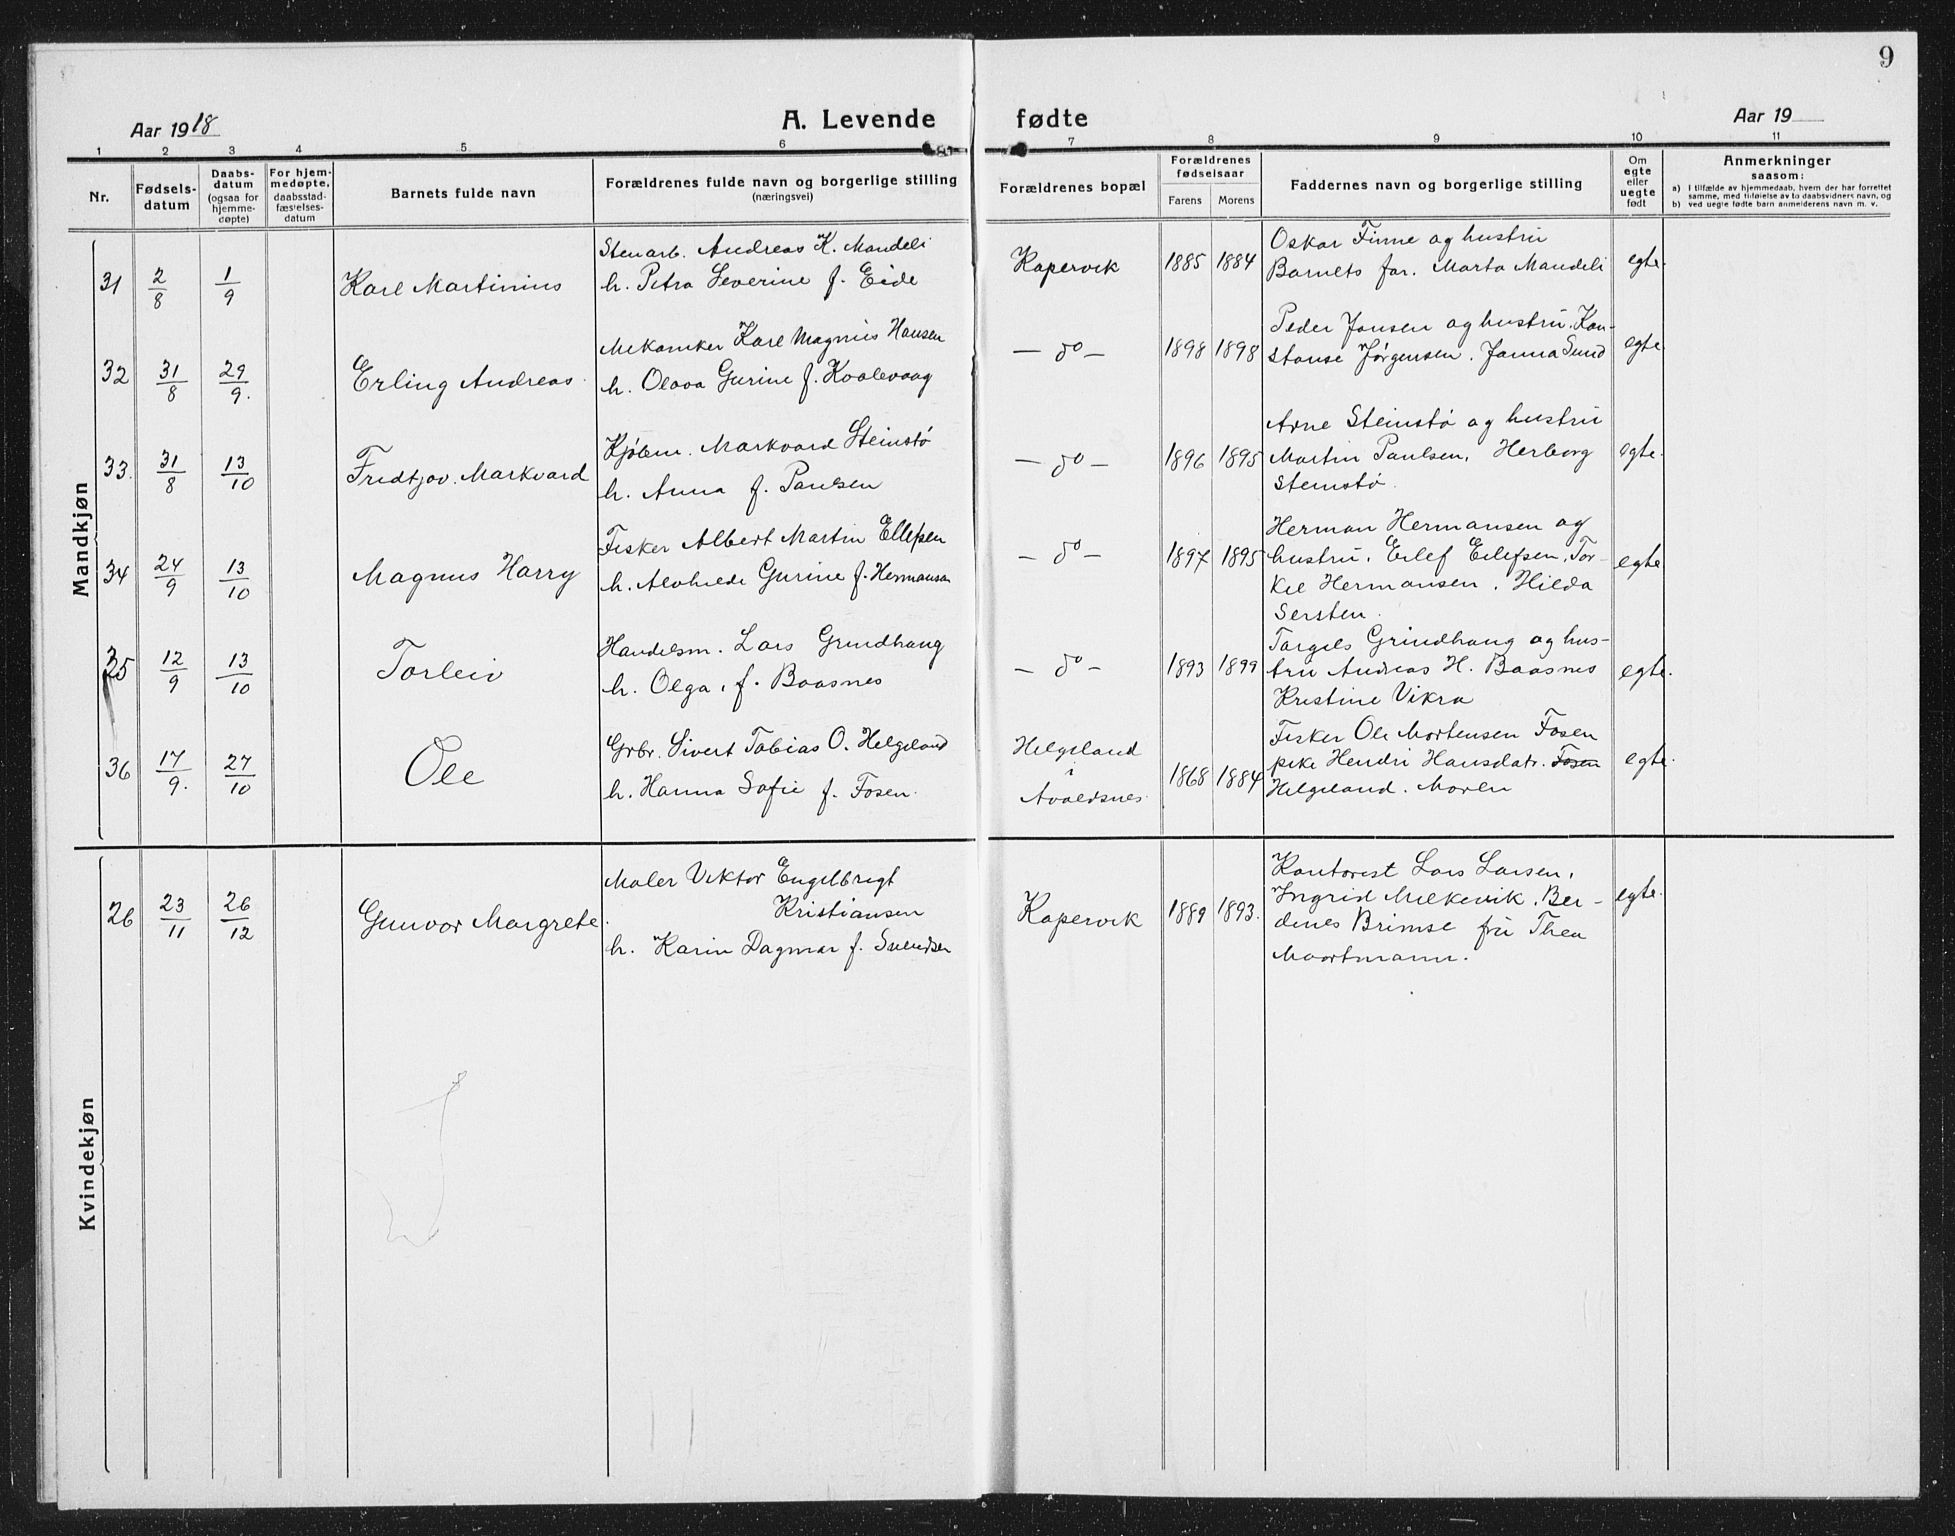 9
Aar 1918
A. Levende fødte
Aar 19
1 2 3 4 5 6 7 8 9 10 11
Nr.
Fødsels-
datum
Daabs-
datum
(ogsaa for
hjemme-
døpte)
For hjem-
medøpte,
daabsstad-
fæstelses-
datum
Barnets fulde navn
Forældrenes fulde navn og borgerlige stilling
(næringsvei)
Forældrenes bopæl
Forældrenes
fødselsaar
Farens Morens
Faddernes navn og borgerlige stilling
Om
egte
eller
uegte
født
Anmerkninger
saasom:
a) I tilfælde av hjemmedaab, hvem der har forrettet
samme, med tilføielse av to daabsvidners navn, og
b) ved uegte fødte barn anmelderens navn m. v.
Mandkjøn
31 2/8 1/9 Karl Martinius
Stenarb. Andreas K. Mandeli
h. Petra Severine f. Eide
Kopervik 1885 1884
Oskar Finne og hustru
Barnets far. Marta Mandeli
egte.
32 31/8 29/9. Erling Andreas
Mekaniker Karl Magnus Hansen
h. Olava Gurine f. Kvalevaag
— do — 1898 1898
Peder Jansen og hustru. Kon-
stanse Jørgensen. Janna Sund
egte
33. 31/8 13/10 Fridtjov. Markvard
Kjøbm. Markvard Steinstø
h. Anna f. Paulsen
— do — 1896 1895
Arne Steinstø og hustru
Martin Paulsen, Herborg
Steinstø.
egte.
34 24/9 13/10 Magnus Harry
Fisker Albert Martin Ellefsen
h. Alvhilde Gurine f. Hermansen
— do — 1897 1895
Herman Hermansen og
hustru. Eilef Eilefsen. Tor-
kel Hermansen. Hilda
Sersten.
egte
35 12/9 13/10 Torleiv
Handelsm. Lars Grindhaug
h. Olga, f. Baasnes
— do — 1893 1899
Torgils Grindhaug og hus-
tru Andreas H. Baasnes
Kristine Vikra
egte.
36 17/9. 27/10 Ole
Grbr. Sivert Tobias O. Helgeland
h. Hanna Sofie f. Fosen.
Helgeland
i
Avaldsnes. 1868 1884
Fisker Ole Mortensen Fosen
pike Hendri Hansdatr. Fosen
Helgeland. Moren
egte.
Kvindekjøn
26 23/11 26/12 Gunvor Margrete.
Maler Viktor Engelbregt
Kristiansen
h. Karin Dagmar f. Svendsen
Kopervik 1889 1893.
Kontorist Lars Larsen,
Ingrid Melkevik. Ber-
dines Brimse fru Thea
Moortmann.
egte.